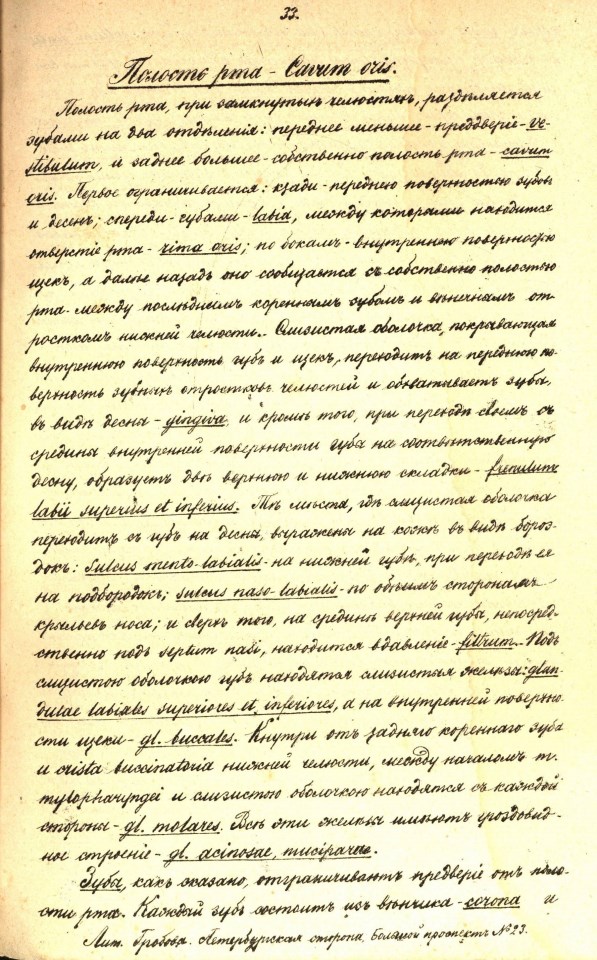 33.
Полость рта – Cavum oris.
Полость рта, при замкнутыхъ челюстяхъ, раздѣляется
зубами на два отдѣленія: переднее меньшее – преддверіе – ve-
stibulum, и заднее большее – собственно полость рта – cavum
oris. Первое ограничивается: кзади – переднею поверхностью зубовъ
и десенъ; спереди – губами – labia, между которыми находится
отверстіе рта – rima oris; по бокамъ – внутреннею поверхностью
щекъ, а далѣе назадъ оно сообщается съ собственно полостью
рта – между послѣднимъ кореннымъ зубомъ и вѣнечнымъ от-
росткомъ нижней челюсти. – Слизистая оболочка, покрывающая
внутреннюю поверхность губъ и щекъ, переходитъ на переднюю по-
верхность зубныхъ отростковъ челюстей и обхватываетъ зубы,
въ видѣ десны – gingiva, и кромѣ того, при переходѣ своемъ съ
средины внутренней поверхности губы на соотвѣтственную
десну, образуетъ двѣ верхнюю и нижнюю складки – frenulum
labii superius et inferius. Тѣ мѣста, гдѣ слизистая оболочка
переходитъ съ губъ на десны, выражены на кожѣ въ видѣ бороз-
докъ: sulcus mento-labialis – на нижней губѣ, при переходѣ ея
на подбородокъ; sulcus naso-labialis – по обѣимъ сторонамъ
крыльевъ носа; и сверхъ того, на срединѣ верхней губы, непосред-
ственно подъ septum nasi, находится вдавленіе – filtrum. – Подъ
слизистою оболочкою губъ находятся слизистыя железы: glan-
dulae labiales superiores et inferiores, а на внутренней поверхно-
сти щеки – gl. buccales. Кнутри отъ задняго коренного зуба
и crista buccinatoria нижней челюсти, между началомъ m.
mylopharyngei и слизистою оболочкою находятся съ каждой
стороны – gl. molares. Всѣ эти железы имѣютъ гроздовид-
ное строеніе – gl. acinosae, muciparae.
Зубы, какъ сказано, отграничиваютъ предверіе отъ поло-
сти рта. Каждый зубъ состоитъ изъ вѣнчика – corona и
Лит. Гробова. Петербургская сторона, Большой проспектъ № 23.